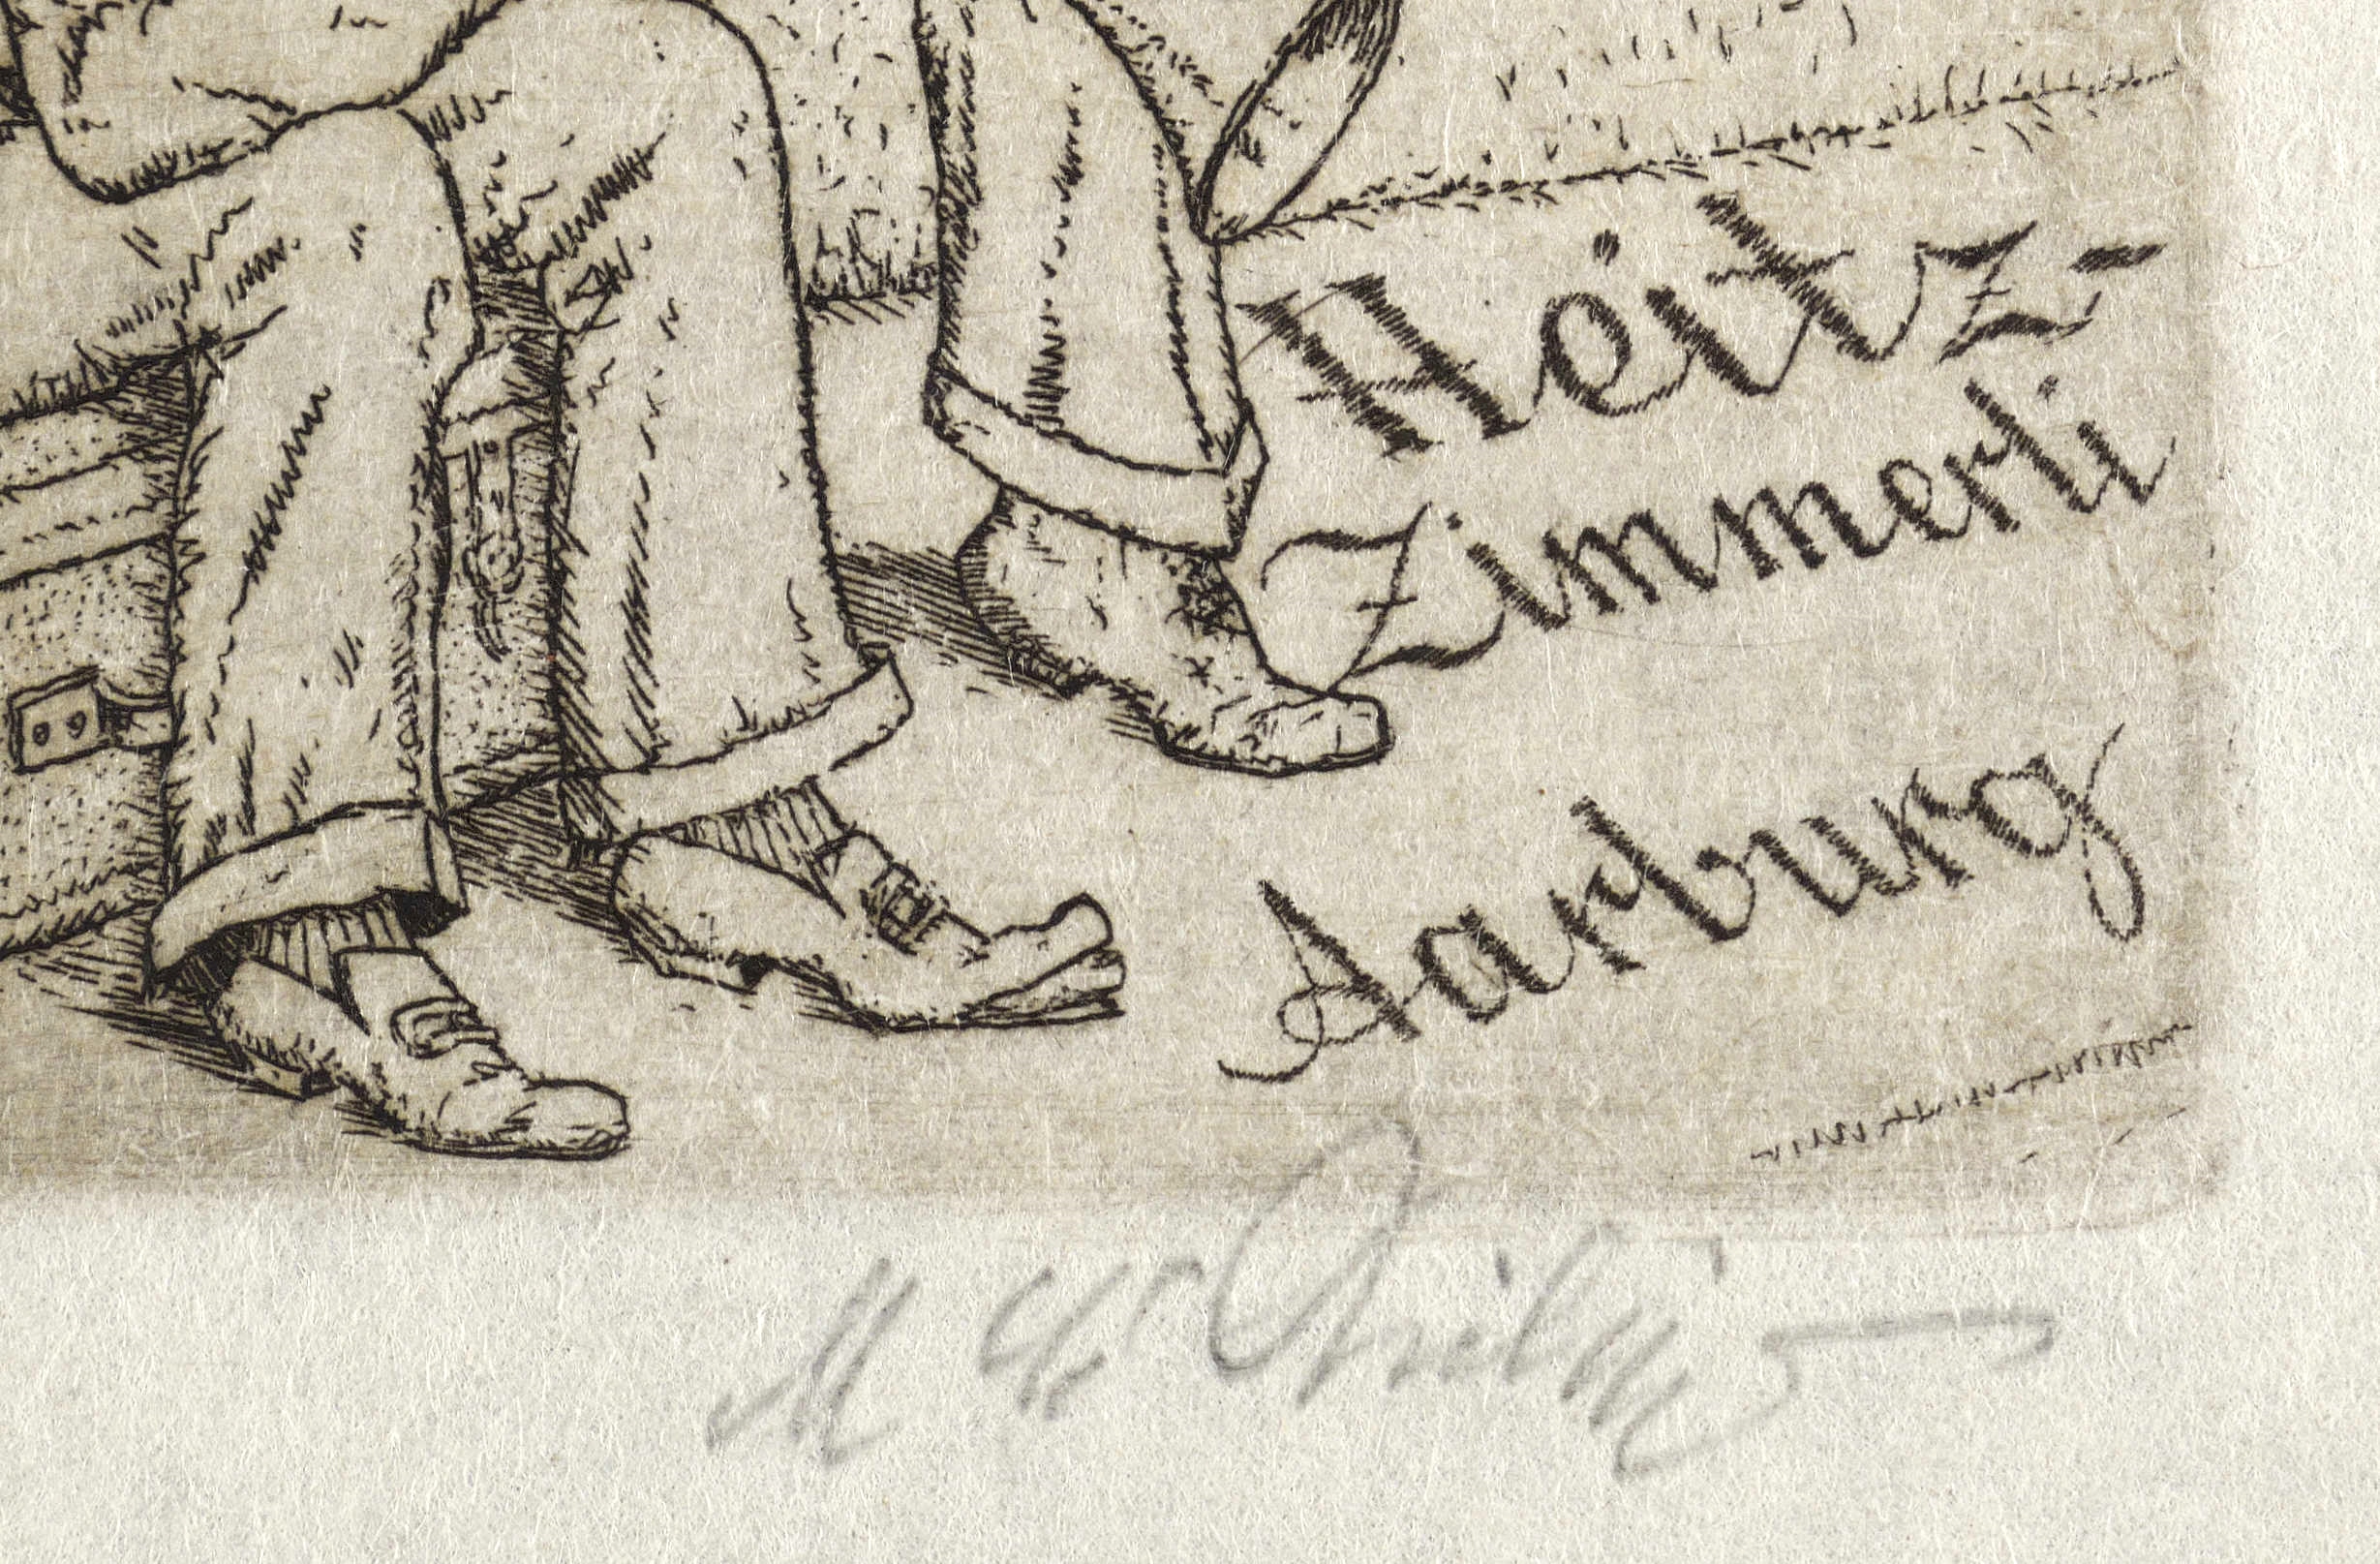 Heitz-
Zimmerli
Aarburg